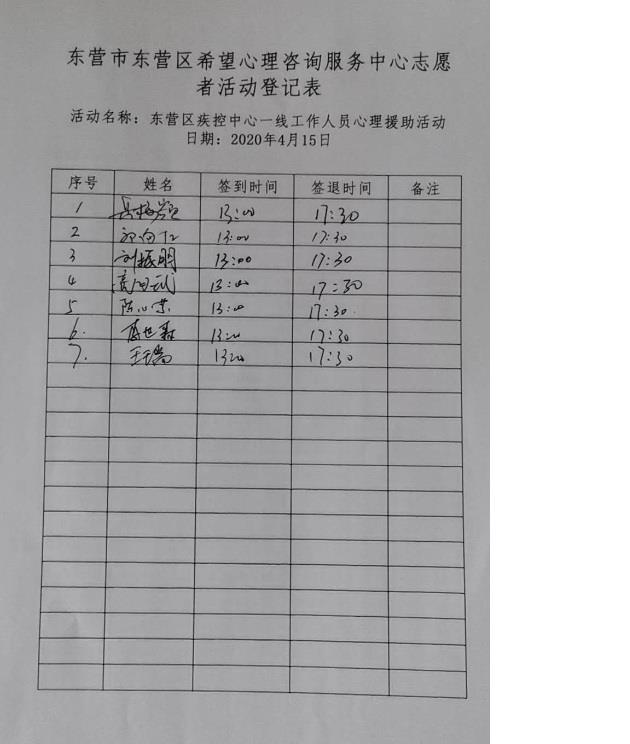 东营市东营区希望心理咨询服务中心志愿
者活动登记表
活动名称：东营区疾控中心一线工作人员心理援助活动
日期：2020年4月15日
序号 姓名 签到时间 签退时间 备注
1 13:00 17:30
2 13:00 17:30
3 刘振明 13:00 17:30
4 13:00 17:30
5 陈心棠 13:00 17:30
6. 17:30
7. 17:30